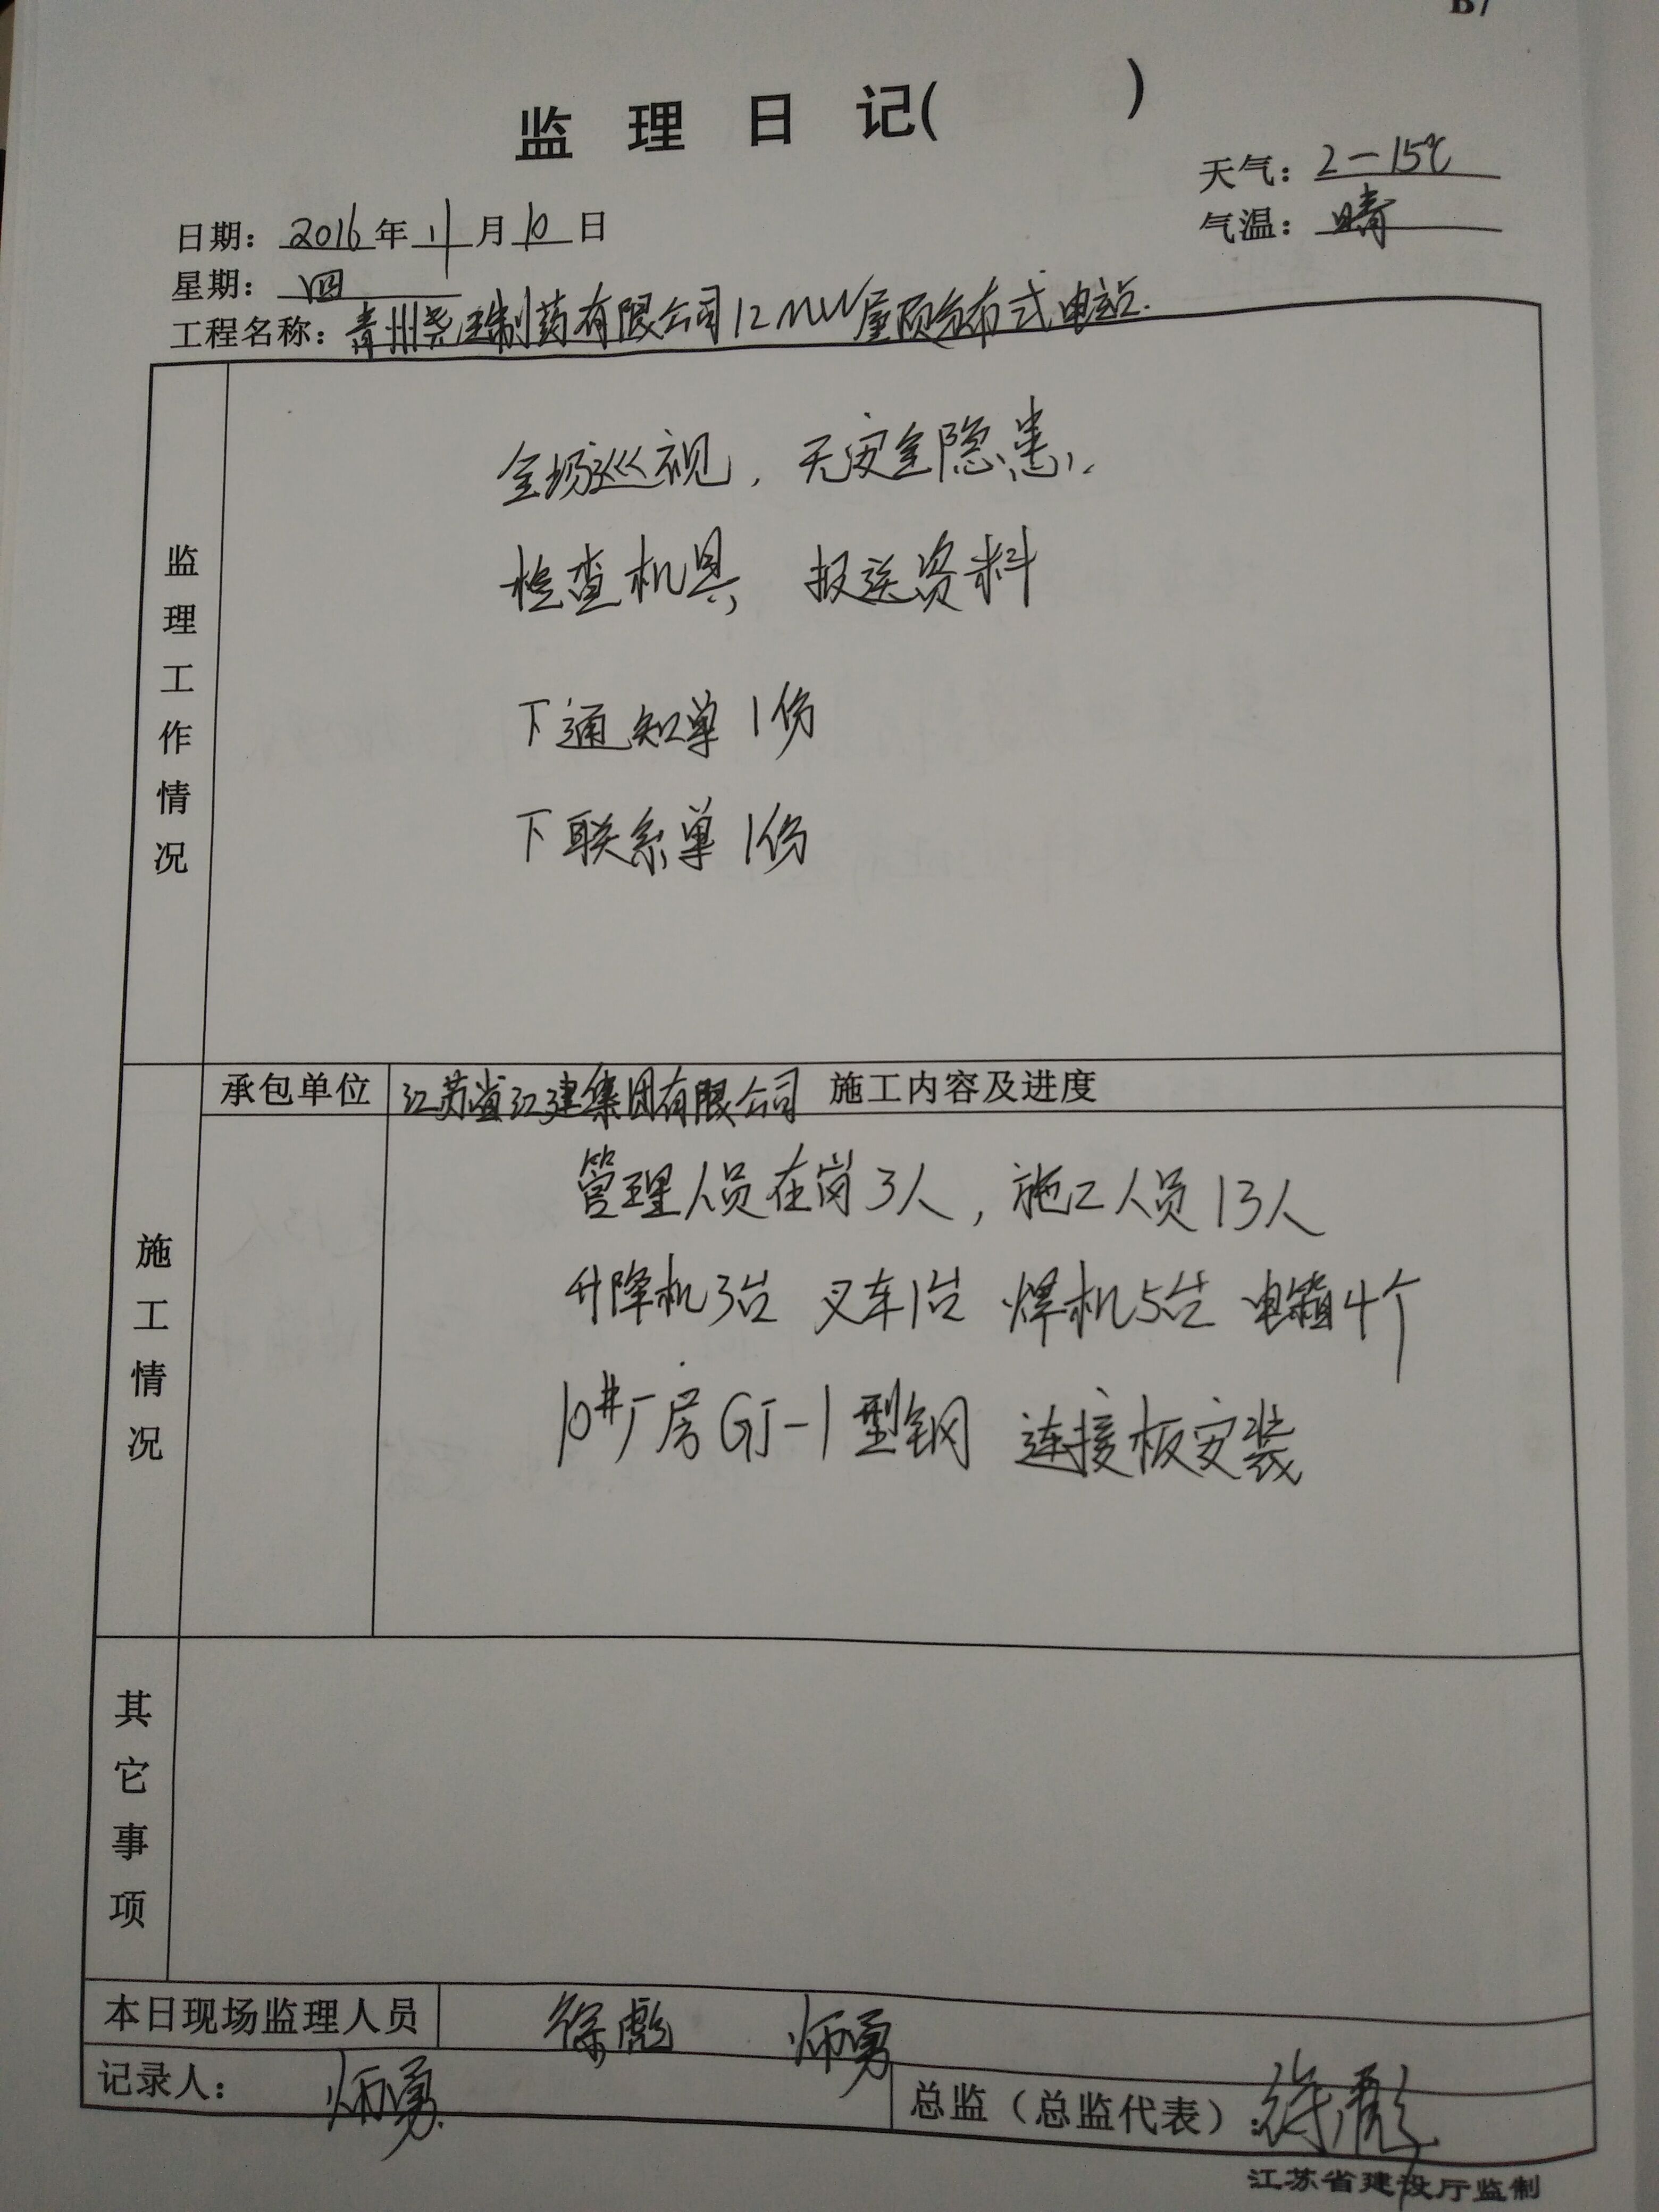 监理日记( )
天气：2—15℃
日期：2016年11月10日
气温：晴
星期：四
工程名称：青州尧王制药有限公司12MW屋顶分布式电站.
监理工作情况
全场巡视，无安全隐患、
检查机具，报送资料
下通知单1份
下联系单1份
承包单位 江苏省江建集团有限公司 施工内容及进度
施工情况
管理人员在岗3人，施工人员13人
升降机3台 叉车1台 焊机5台 电箱4个
10#厂房GJ-1型钢 连接板安装
其它事项
本日现场监理人员 徐彪 勇
记录人： 勇
总监（总监代表）：徐彪
江苏省建设厅监制